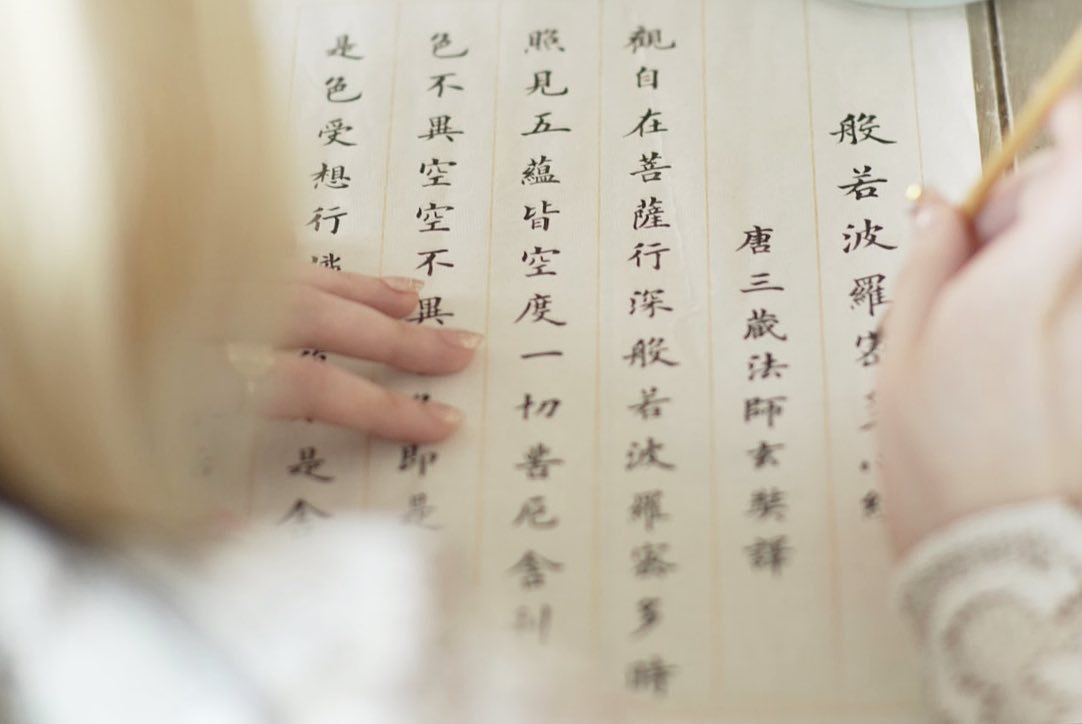 般若波羅蜜
唐三藏法師玄奘譯
觀自在菩薩行深般若波羅蜜多時
照見五蘊皆空度一切苦厄舍利
色不異空空不異 即是
是色受想行 是舍